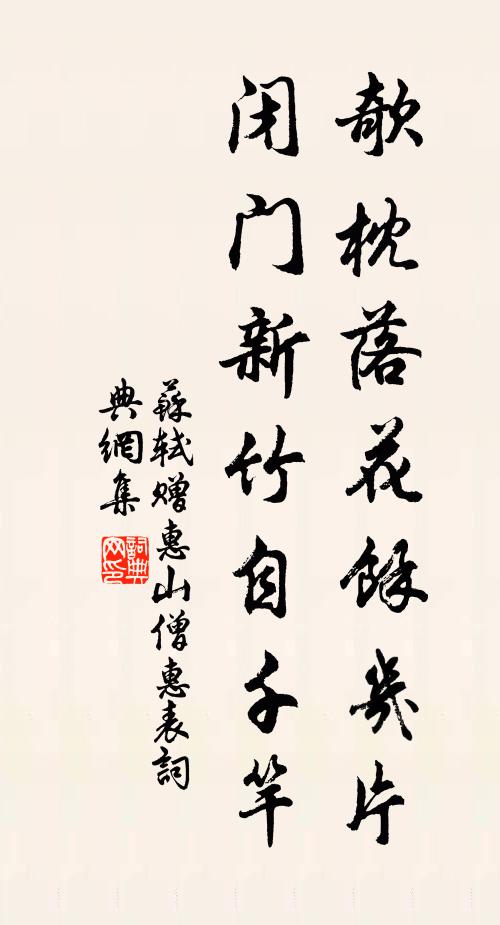 欹枕落花餘幾片
闭门新竹自千竿
蘇軾赠惠山僧惠表詞
典網集
詞典网印